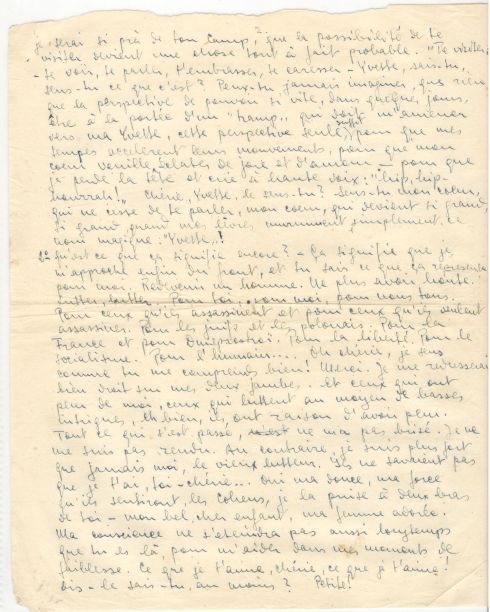 je serai si près de ton camp, que la possibilité de te
visiter devient une chose tout à fait probable. "Te visiter"
- te voir, te parler, t'embrasser, te caresser - Yvette, sais-tu,
sens-tu ce que c'est? Peux-tu jamais imaginer, que rien
que la perspective de pouvoir si vite, dans quelques jours,
être à la portée d'un "tramp", qui doit m'amener
vers ma Yvette, cette perspective seule suffit pour que mes
tempes accélèrent leurs mouvements, pour que mon
coeur veuille éclater de joie et d'amour - pour que
je perde la tête et crie à haute voix: "hip, hip-
hourrah!" Chérie, Yvette, le sens-tu? Sens-tu mon coeur,
qui ne cesse de te parler, mon coeur, qui devient si grand,
si grand quand mes lèvres murmurent simplement ce
nom magique: "Yvette"!
Qu'est ce que ça signifie encore? - Ça signifie que je
m'approche enfin du front, et tu sais ce que ça représente
pour moi. Redevenir un homme. Ne plus avoir honte.
Lutter, lutter. Pour toi, pour moi, pour nous tous.
Pour ceux qu'ils assassinent et pour ceux qu'ils veulent
assassiner. Pour les juifs et les polonais. Pour la
France et pour Dniepostroï. Pour la liberté. Pour le
socialisme. Pour l'humain.... Oh chérie, je sens
comme tu me comprends bien! Merci. Je me redresserai
bien droit sur mes deux jambes. Et ceux qui ont
peur de moi, ceux qui luttent au moyen de basses
intrigues, eh bien, ils ont raison d'avoir peur.
Tout ce qui s'est passé, ne m'a pas brisé. Je ne
me suis pas rendu. Au contraire, je suis plus fort
que jamais moi, le vieux lutteur. Ils ne savaient pas
que je t'ai, toi - chérie... Oui ma douce, ma force
qu'ils sentiront, les cohens, je la puise à deux bras
de toi - mon bel, cher enfant, ma femme adorée.
Ma conscience ne s'éteindra pas aussi longtemps
que tu es là, pour m'aider dans mes moments de
faiblesse. Ce que je t'aime, chérie, ce que je t'aime!
Dis - le sais-tu, au moins? Petite!